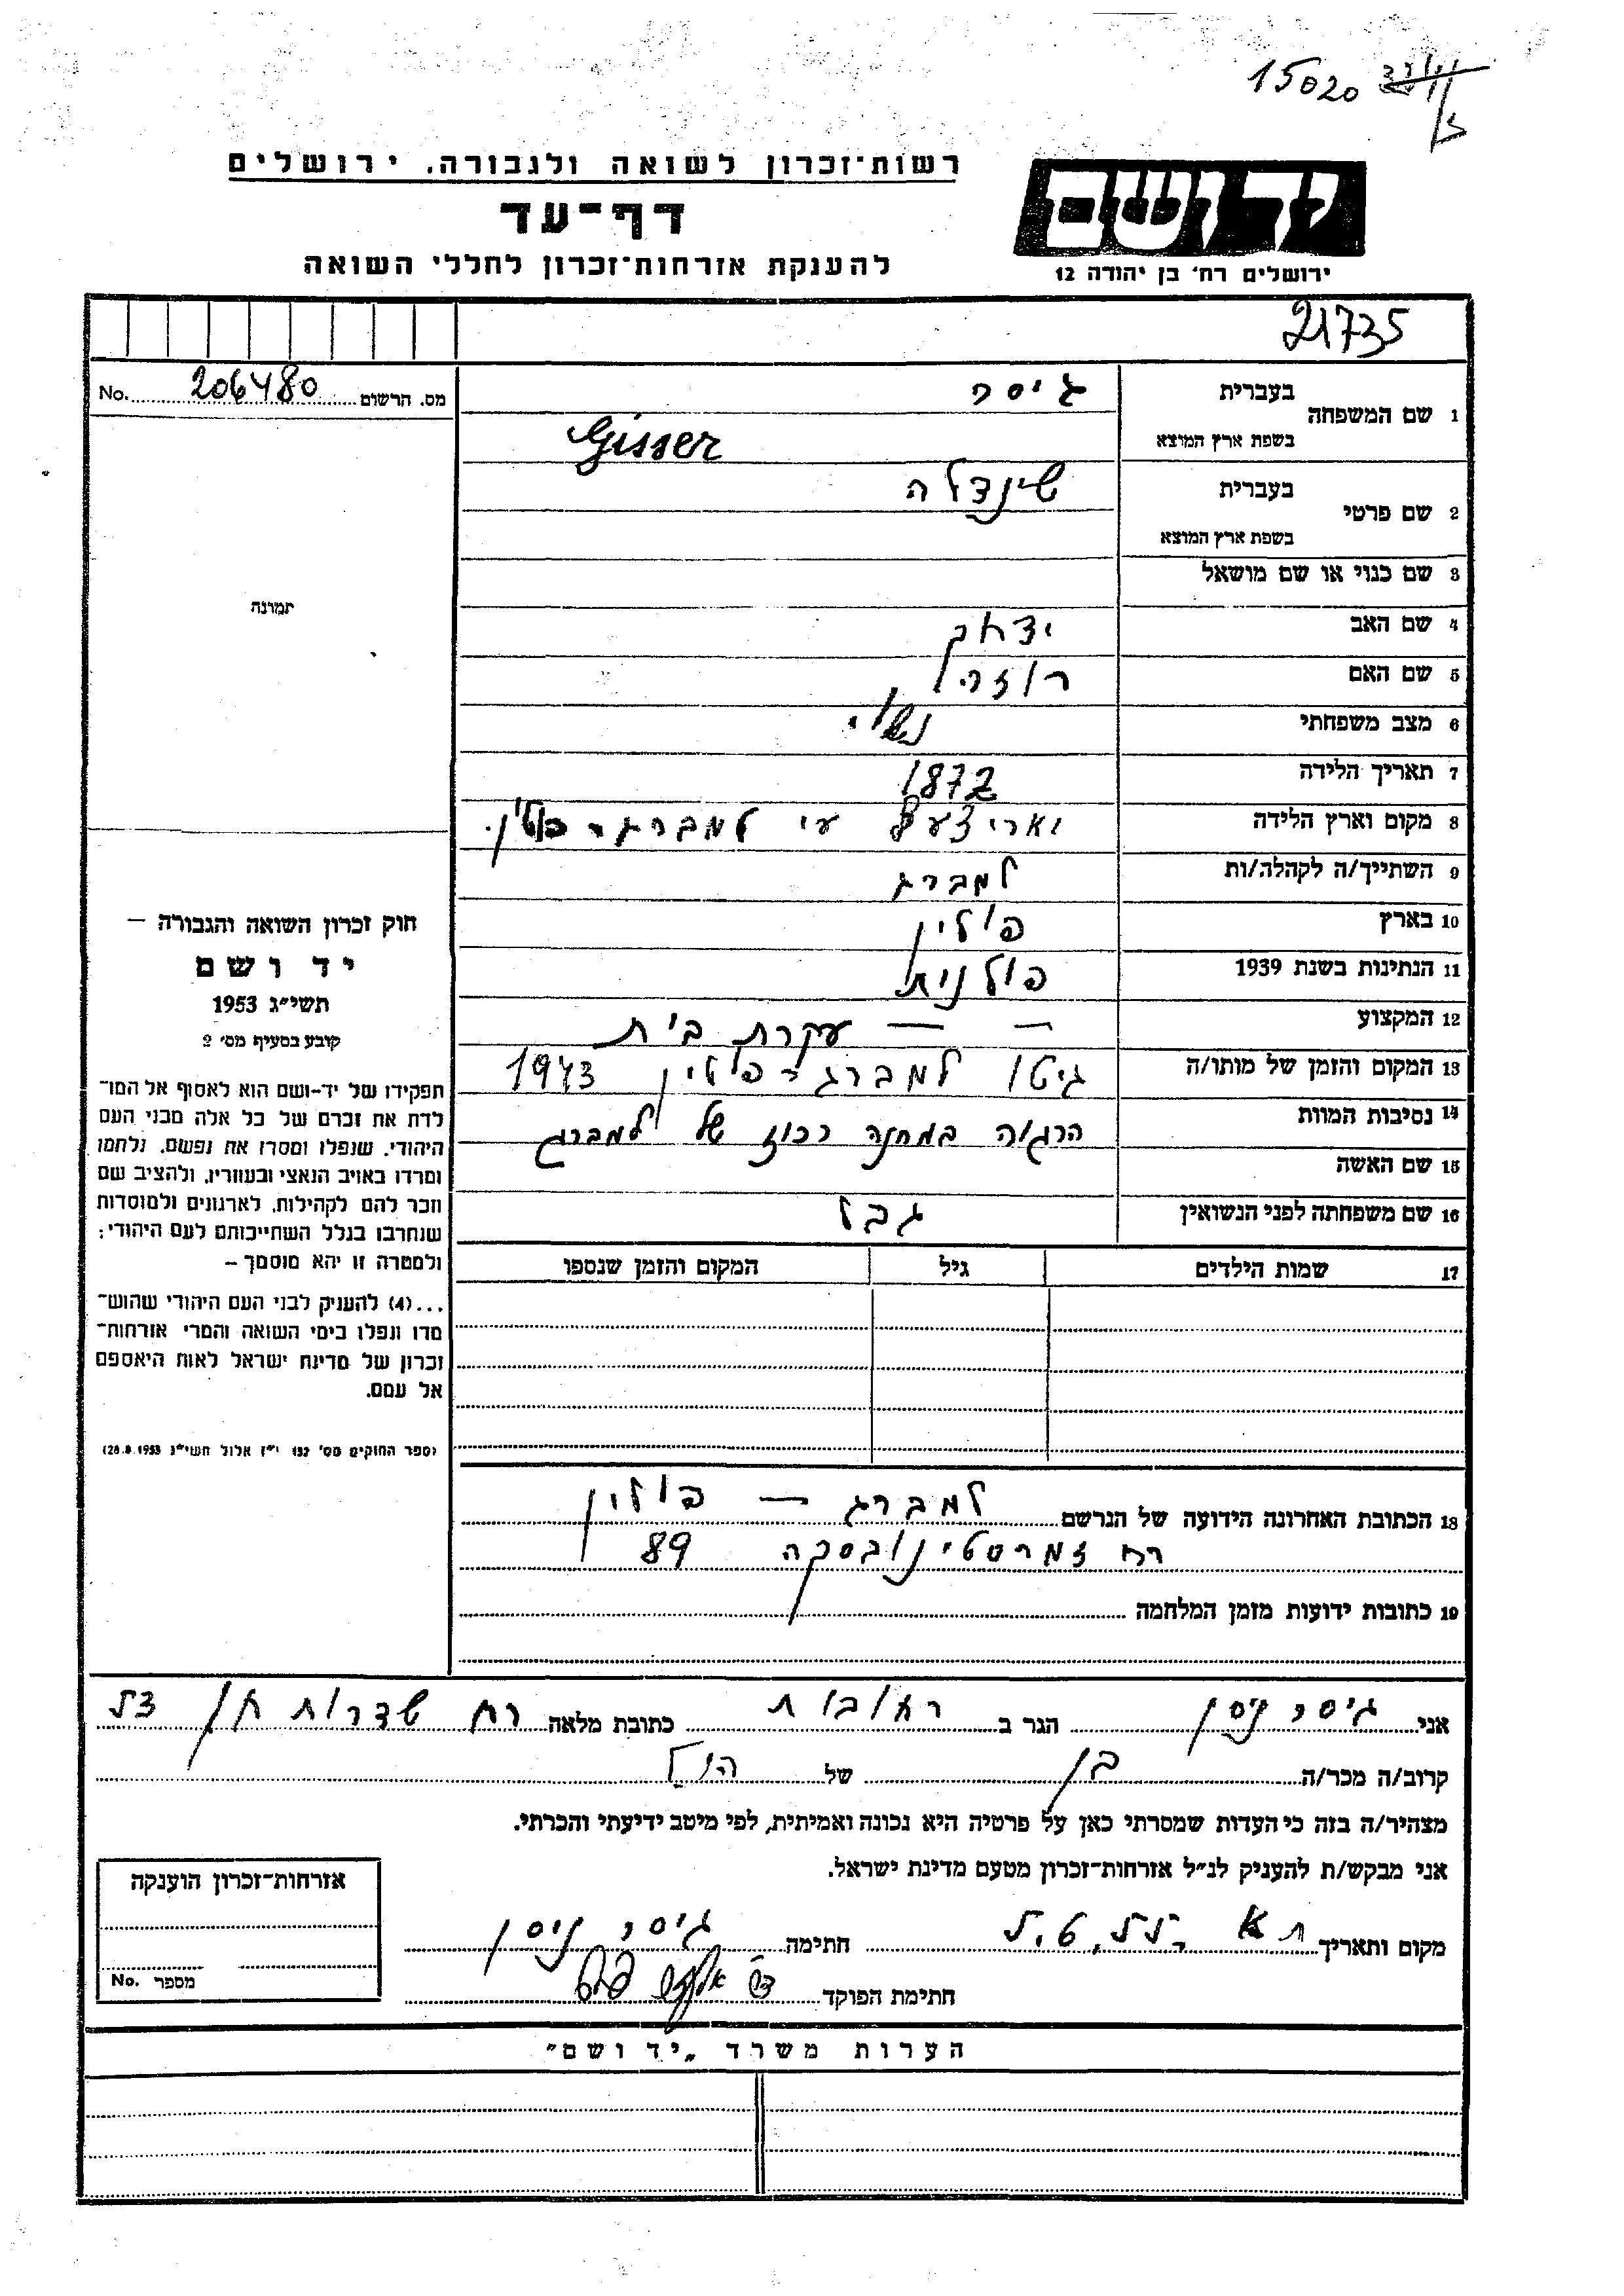 15020
רשות־זכרון לשואה ולגבורה. ירושלים
דף־עד
להענקת אזרחות־זכרון לחללי השואה
יד ושם
ירושלים רח׳ בן יהודה 12
21735
מס. הרשום 206480 No.
1 שם המשפחה
בעברית גיסר
בשפת ארץ המוצא Gisser
2 שם פרטי
בעברית שינדלה
בשפת ארץ המוצא
3 שם כנוי או שם מושאל
4 שם האב יצחק
5 שם האם רוזה
6 מצב משפחתי נשוי
7 תאריך הלידה 1872
8 מקום וארץ הלידה עי למברג - פולין.
9 השתייך/ה לקהלה/ות למברג
10 בארץ פולין
11 הנתינות בשנת 1939 פולנית
12 המקצוע — — עקרת בית
13 המקום והזמן של מותו/ה גיטו למברג - פולין 1943
14 נסיבות המוות הרגוה במחנה רכוז של למברג
15 שם האשה
16 שם משפחתה לפני הנשואין גבל
17 שמות הילדים גיל המקום והזמן שנספו
תמונה
חוק זכרון השואה והגבורה —
יד ושם
תשי״ג 1953
קובע בסעיף מס׳ 2
תפקידו של יד-ושם הוא לאסוף אל המו־
לדת את זכרם של כל אלה מבני העם
היהודי, שנפלו ומסרו את נפשם, נלחמו
ומרדו באויב הנאצי ובעוזריו, ולהציב שם
וזכר להם לקהילות, לארגונים ולמוסדות
שנחרבו בגלל השתייכותם לעם היהודי;
ולמטרה זו יהא מוסמך —
...(4) להעניק לבני העם היהודי שהוש־
מדו ונפלו בימי השואה והמרי אזרחות־
זכרון של מדינת ישראל לאות היאספם
אל עמם.
(ספר החוקים מס׳ 132 י״ז אלול תשי״ג 28.8.1953)
18 הכתובת האחרונה הידועה של הנרשם למברג — פולין
רח זמרסטינובסקה 89
19 כתובות ידועות מזמן המלחמה
אני גיסר ניסן הגר ב רחובות כתובת מלאה רח שדרות חן
קרוב/ה מכר/ה בן של הנ״ל
מצהיר/ה בזה כי העדות שמסרתי כאן על פרטיה היא נכונה ואמיתית, לפי מיטב ידיעתי והכרתי.
אני מבקש/ת להעניק לנ״ל אזרחות־זכרון מטעם מדינת ישראל.
מקום ותאריך תא חתימה גיסר ניסן
חתימת הפוקד
אזרחות־זכרון הוענקה
מספר No.
הערות משרד „יד ושם״